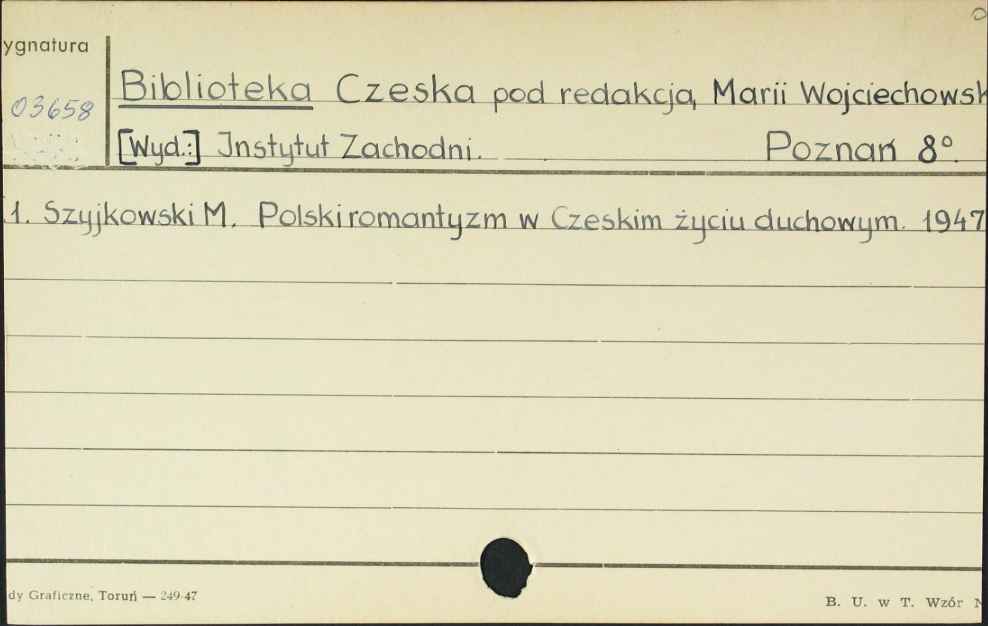 ygnatura
03658
Biblioteka Czeska pod redakcją Marii Wojciechowsk
[Wyd.:] Instytut Zachodni. Poznań 8°.
1. Szyjkowski M. Polski romantyzm w Czeskim życiu duchowym. 1947
dy Graficzne, Toruń — 249-47
B. U. w T. Wzór N